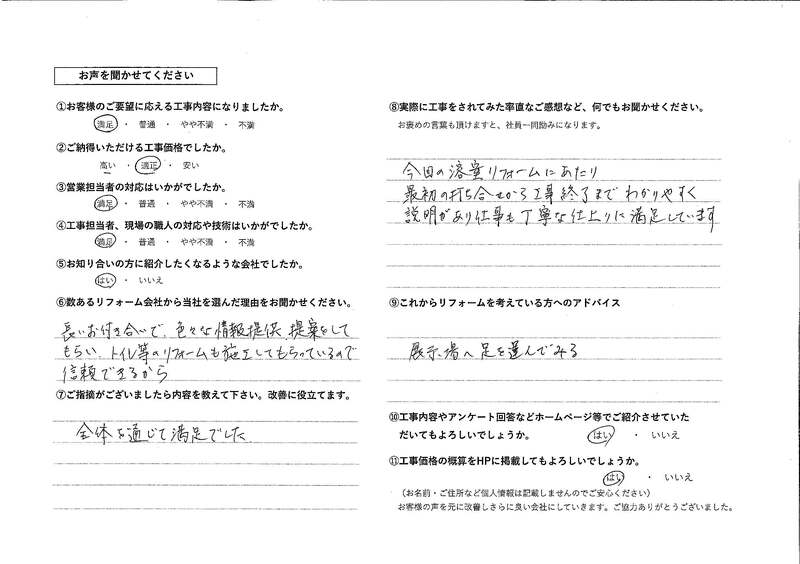 お声を聞かせてください
①お客様のご要望に応える工事内容になりましたか。
満足 ・ 普通 ・ やや不満 ・ 不満
②ご納得いただける工事価格でしたか。
高い ・ 適正 ・ 安い
③営業担当者の対応はいかがでしたか。
満足 ・ 普通 ・ やや不満 ・ 不満
④工事担当者、現場の職人の対応や技術はいかがでしたか。
満足 ・ 普通 ・ やや不満 ・ 不満
⑤お知り合いの方に紹介したくなるような会社でしたか。
はい ・ いいえ
⑥数あるリフォーム会社から当社を選んだ理由をお聞かせください。
長いお付き合いで、色々な情報提供、提案をして
もらい、トイレ等のリフォームも施工してもらっているので
信頼できるから
⑦ご指摘がございましたら内容を教えて下さい。改善に役立てます。
全体を通じて満足でした
⑧実際に工事をされてみた率直なご感想など、何でもお聞かせください。
お褒めの言葉も頂けますと、社員一同励みになります。
今回の浴室リフォームにあたり
最初の打ち合せから工事終了までわかりやすく
説明があり仕事も丁寧な仕上りに満足しています
⑨これからリフォームを考えている方へのアドバイス
展示場へ足を運んでみる
⑩工事内容やアンケート回答などホームページ等でご紹介させていた
だいてもよろしいでしょうか。 はい ・ いいえ
⑪工事価格の概算をHPに掲載してもよろしいでしょうか。
はい ・ いいえ
（お名前・ご住所など個人情報は記載しませんのでご安心ください）
お客様の声を元に改善しさらに良い会社にしていきます。ご協力ありがとうございました。